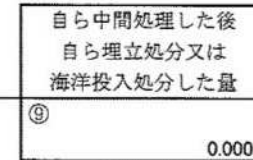 自ら中間処理した後
自ら埋立処分又は
海洋投入処分した量
⑨
0.000